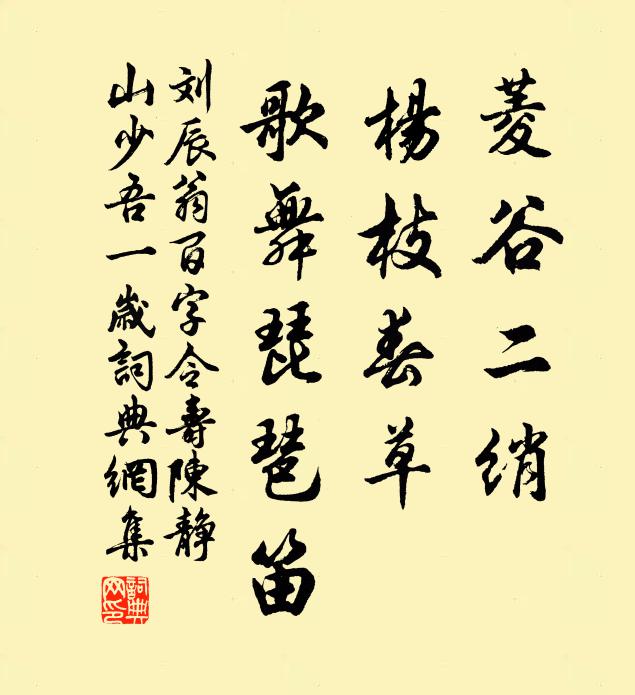 菱谷二綃
楊枝春草
歌舞琵琶笛
刘辰翁百字令壽陳静
山少吾一歲詞典網集
詞典網印